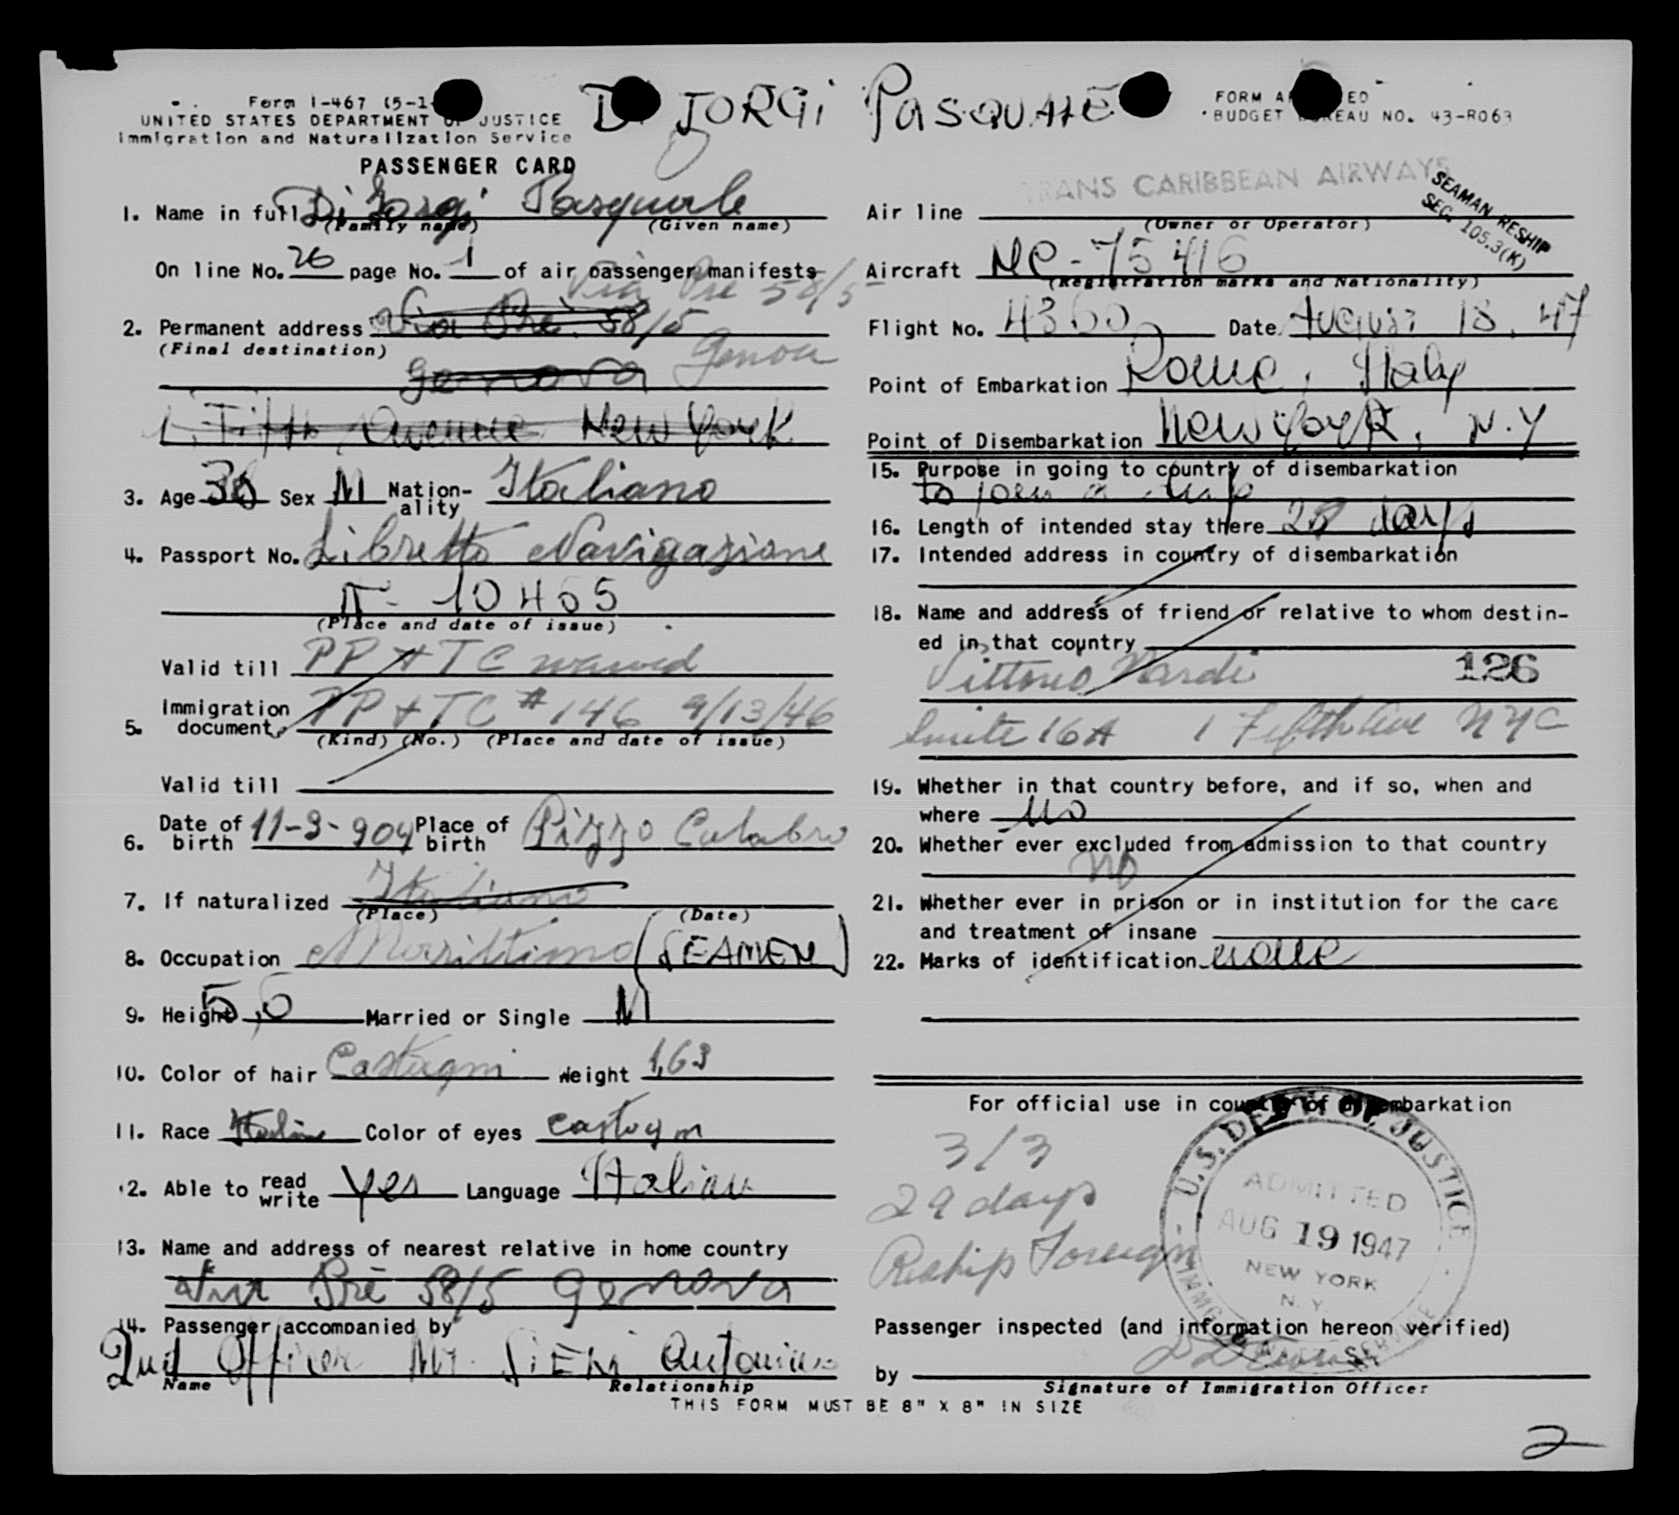 Form I-467 (5-1-
UNITED STATES DEPARTMENT OF JUSTICE
Immigration and Naturalization Service
PASSENGER CARD
DI JORGi PASQUALE
FORM A ED
BUDGET BUREAU NO. 43-R063
1. Name in full Di Jorgi Pasquale
(Family name) (Given name)
On line No. 26 page No. 1 of air passenger manifests
Via Prè 58/5
2. Permanent address Via Prè 58/5
(Final destination)
Genova Genoa
1. Fifth Avenue New York
3. Age 38 Sex M Nation-ality Italiano
4. Passport No. Libretto Navigazione
N- 10465
(Place and date of issue)
Valid till PP + TC waived
5. Immigration document PP + TC # 146 9/13/46
(Kind) (No.) (Place and date of issue)
Valid till
6. Date of birth 11-3-904 Place of birth Pizzo Calabro
7. If naturalized Italiano
(Place) (Date)
8. Occupation Marittimo (SEAMEN)
9. Height 5,0 Married or Single M
10. Color of hair Castagni Weight 1,63
11. Race Italian Color of eyes castagni
12. Able to read write Yes Language Italian
13. Name and address of nearest relative in home country
Via Prè 58/5 Genova
14. Passenger accompanied by
2nd Officer Mr. Antonino
Name Relationship
TRANS CARIBBEAN AIRWAYS
SEAMAN RESHIP
SEC. 105.3(K)
Air line
(Owner or Operator)
Aircraft NC-75416
(Registration marks and Nationality)
Flight No. 4360 Date August 18, 47
Point of Embarkation Rome, Italy
Point of Disembarkation New York, N.Y
15. Purpose in going to country of disembarkation
to join a ship
16. Length of intended stay there 28 days
17. Intended address in country of disembarkation
18. Name and address of friend or relative to whom destin-
ed in that country
Vittorio Nardi 126
Suite 16A 1 Fifth Ave NYC
19. Whether in that country before, and if so, when and
where no
20. Whether ever excluded from admission to that country
no
21. Whether ever in prison or in institution for the care
and treatment of insane
22. Marks of identification none
For official use in country of disembarkation
3/3
29 days
Reship Foreign
U.S. DEPT. OF JUSTICE
ADMITTED
AUG 19 1947
NEW YORK
N.Y.
IMMIGRATION SERVICE
Passenger inspected (and information hereon verified)
by
Signature of Immigration Officer
THIS FORM MUST BE 8" X 8" IN SIZE
2